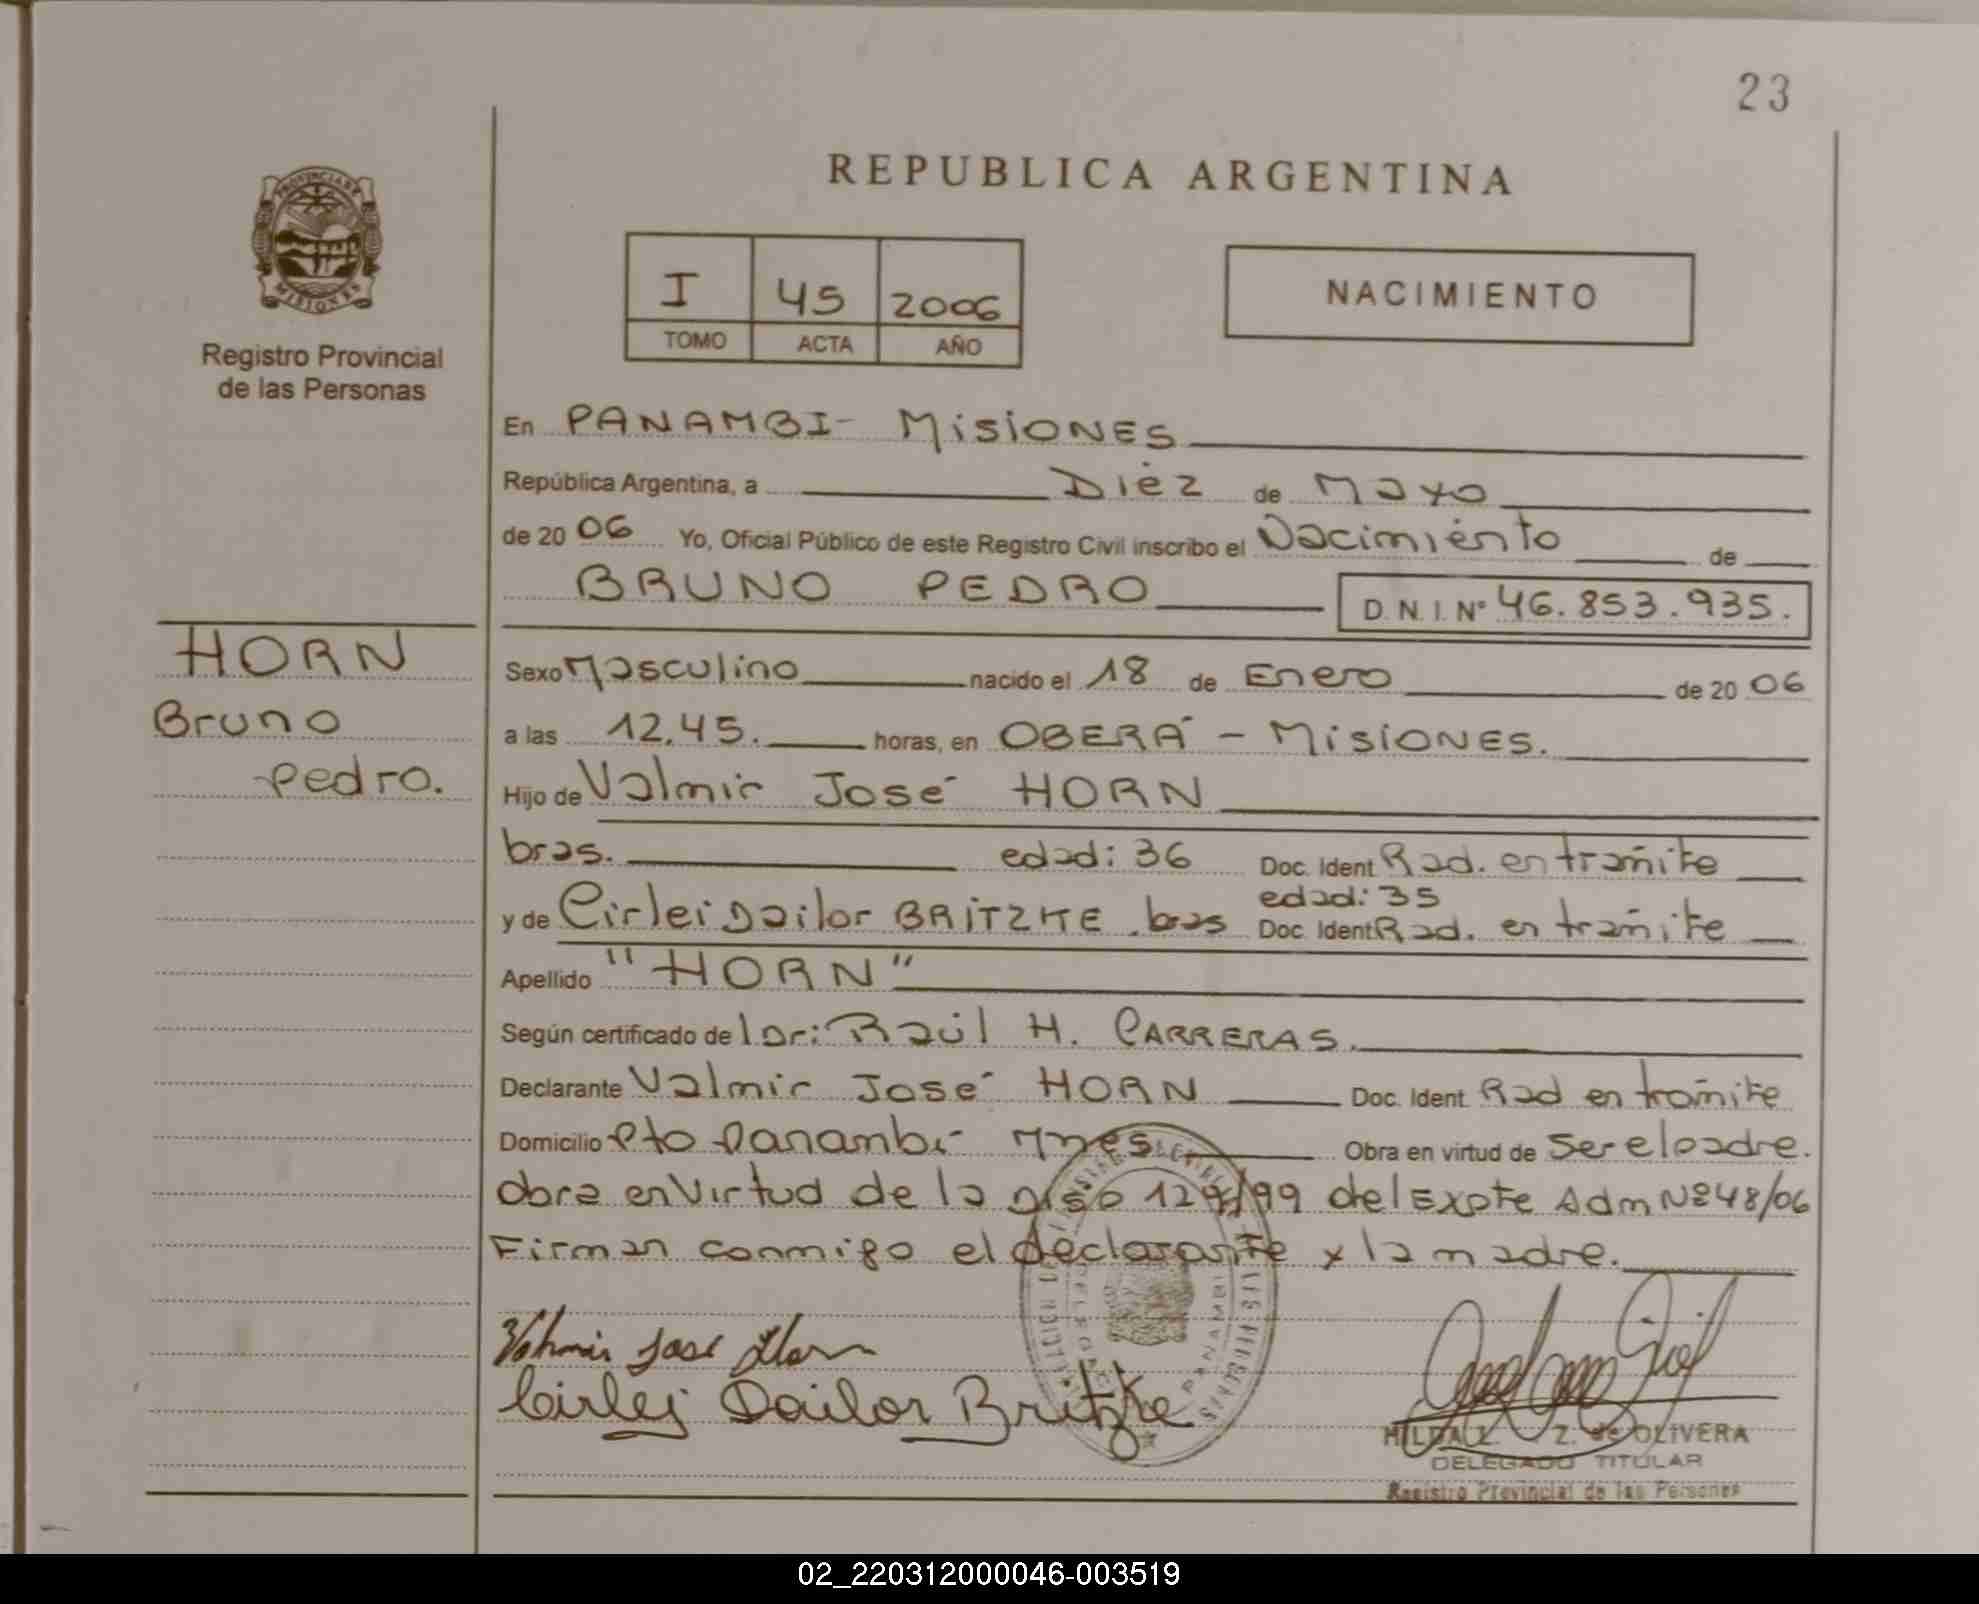 23
REPUBLICA ARGENTINA
PROVINCIA DE
MISIONES
Registro Provincial
de las Personas
I 45 2006
TOMO ACTA AÑO
NACIMIENTO
En PANAMBI - Misiones
República Argentina, a Diez de Mayo
de 20 06 Yo, Oficial Público de este Registro Civil inscribo el Nacimiento de
BRUNO PEDRO D.N.I. Nº 46.853.935.
HORN
Bruno
Pedro.
Sexo Masculino nacido el 18 de Enero de 20 06
a las 12,45. horas, en OBERÁ - Misiones.
Hijo de Valmir José HORN
bras. edad: 36 Doc. Ident Rad. en tramite
edad: 35
y de Cirlei Dailor BRITZKE . bras Doc. Ident Rad. en tramite
Apellido "HORN"
Según certificado de l Dr: Raúl H. CARRERAS.
Declarante Valmir José HORN Doc. Ident. Rad en tramite
Domicilio Pto Panambi - Mnes Obra en virtud de Ser el padre.
Obra en Virtud de la Diso 129/99 del Expte Adm Nº 48/06
Firman conmigo el declarante y la madre.
Valmir José Horn
Cirlej Dailor Britzke
PANAMBI
HILDA L. Z. de OLIVERA
DELEGADO TITULAR
Registro Provincial de las Personas
02_220312000046-003519